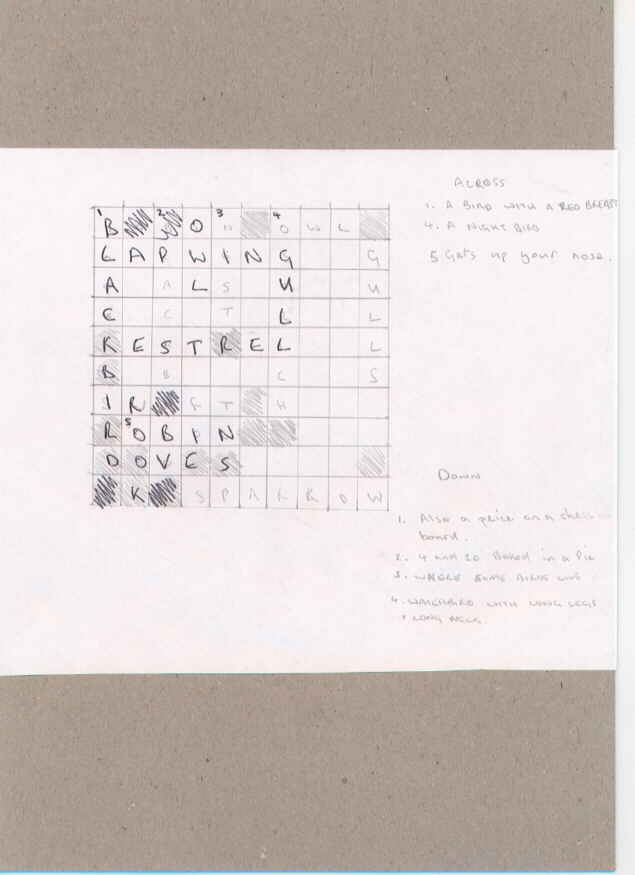 1 B 2 O 3 4 O W L
L A P W I N G G
A A L S U U
C C T L L
K E S T R E L L
B B C S
I R F T H
R 5 O B I N
D O V E S
K S P A R R O W
ACROSS
1. A BIRD WITH A RED BREAST
4. A NIGHT BIRD
5 Gets up your nose.
Down
1. Also a peice on a chess
board.
2. 4 and 20 Baked in a Pie
3. WHERE SOME BIRDS LIVE
4. WITH LONG LEGS
+ LONG NECK.